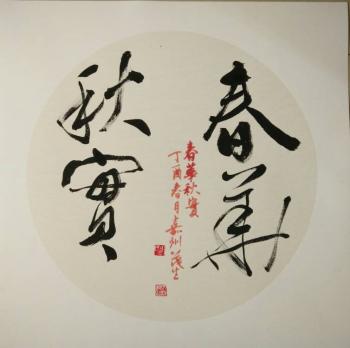 春華
秋實
春華秋實
丁酉春月嘉州